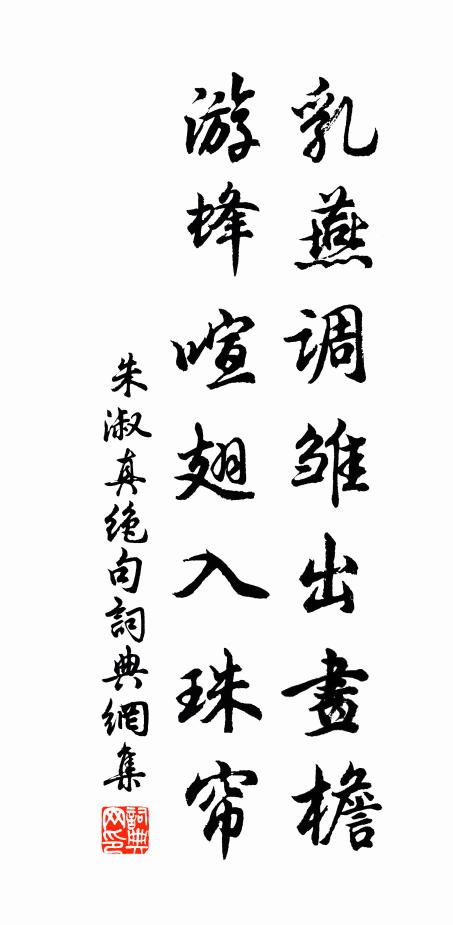 乳燕調雏出畫檐
游蜂喧翅入珠帘
朱淑真绝句詞典網集
詞典网印